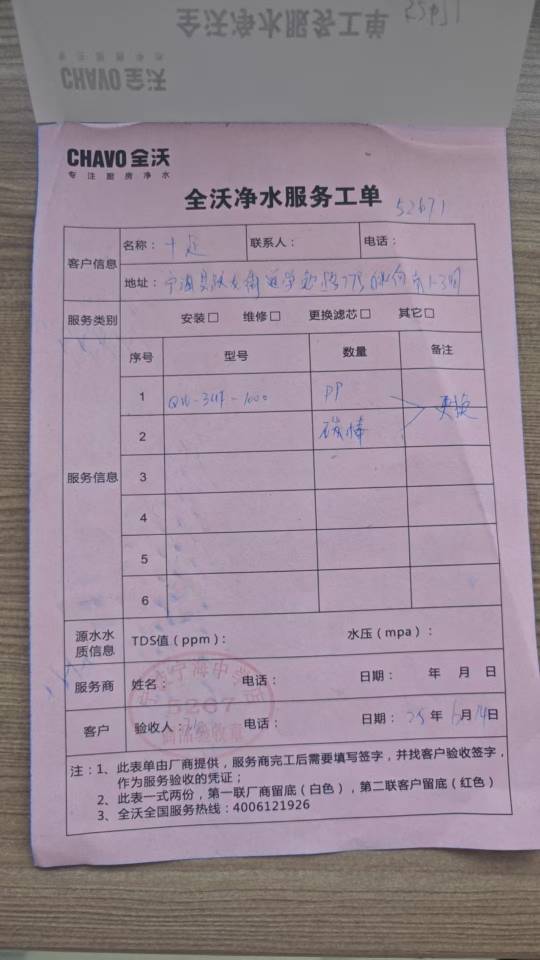 全沃净水服务工单
CHAVO 全沃
CHAVO 全沃
专注厨房净水
全沃净水服务工单 52671
客户信息
名称：十足 联系人： 电话：
地址：宁海县跃龙街道学勉路77号
服务类别 安装□ 维修□ 更换滤芯□ 其它□
服务信息
序号 型号 数量 备注
1 PP
更换
2 碳棒
3
4
5
6
源水水质信息 TDS值（ppm）： 水压（mpa）：
服务商 姓名： 电话： 日期： 年 月 日
宁海中学店
5267
商品验收章
客户 验收人： 电话： 日期：25年 月14日
注：1、此表单由厂商提供，服务商完工后需要填写签字，并找客户验收签字，
作为服务验收的凭证；
2、此表一式两份，第一联厂商留底（白色），第二联客户留底（红色）
3、全沃全国服务热线：4006121926